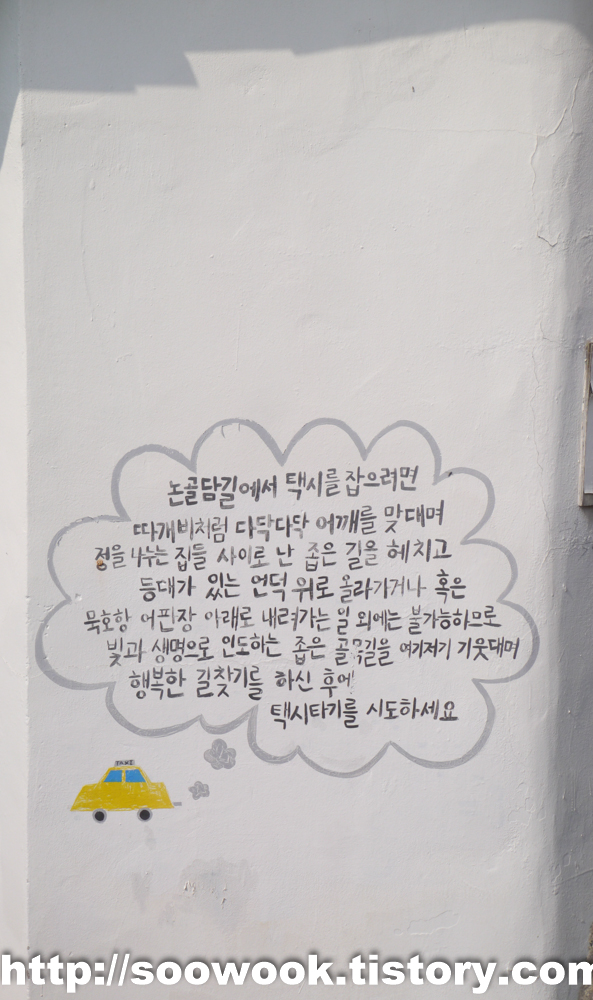 논골담길에서 택시를 잡으려면
따개비처럼 다닥다닥 어깨를 맞대며
정을 나누는 집들 사이로 난 좁은 길을 헤치고
등대가 있는 언덕 위로 올라가거나 혹은
묵호항 어판장 아래로 내려가는 일 외에는 불가능하므로
빛과 생명으로 인도하는 좁은 골목길을 여기저기 기웃대며
행복한 길찾기를 하신 후에
택시타기를 시도하세요
TAXI
http://soowook.tistory.com